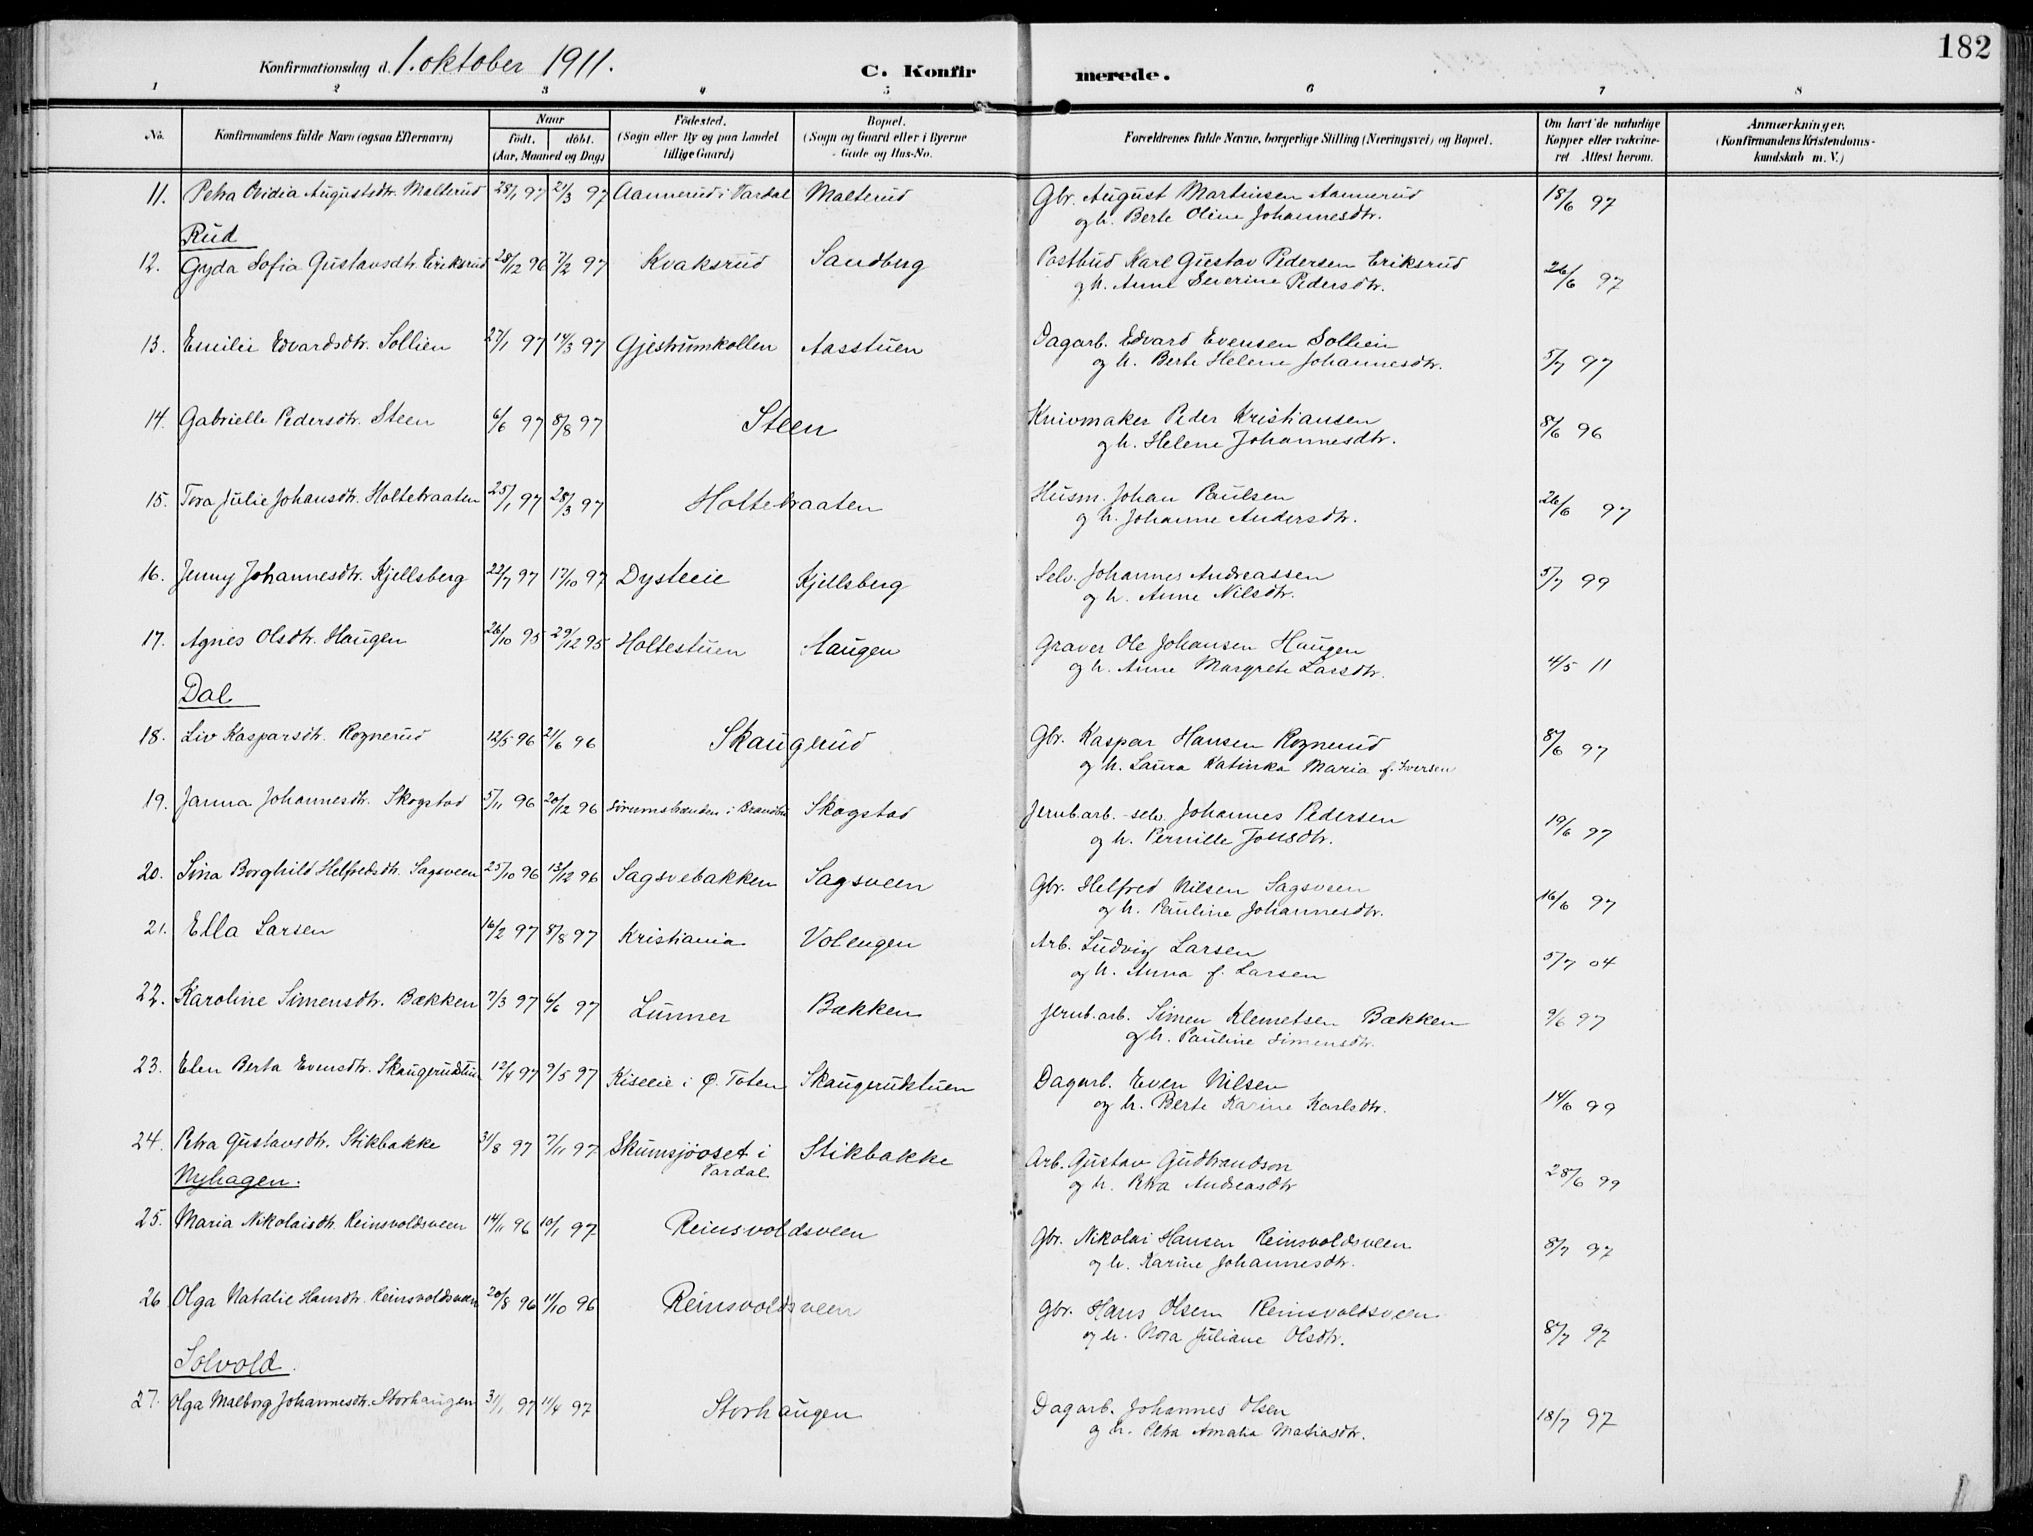 182
Konfirmationsdag d. 1. oktober 1911.
C. Konfirmerede.
1 2 3 4 5 6 7 8
No. | Konfirmandens fulde Navn (ogsaa Efternavn) | Naar født. døbt. (Aar, Maaned og Dag) | Fødested. (Sogn eller By og paa Landet tillige Gaard) | Bopæl. (Sogn og Gaard eller i Byerne Gade og Hus-No. | Forældrenes fulde Navne, borgerlige Stilling (Næringsvei) og Bopæl. | Om havt de naturlige Kopper eller vakcineret. Attest herom. | Anmærkninger. (Konfirmandens Kristendomskundskab m. V.)
11. Petra Ovidia Augustsdtr. Malterud 28/1 97 21/3 97 Aannerud i Vardal Malterud Gbr. August Martinsen Aannerud 18/6 97
og h. Berte Oline Johannesdtr.
Rud
12. Gyda Sofia Gustavsdtr. Eriksrud 28/12 96 7/2 97 Kvaksrud Sandberg Postbud Karl Gustav Pedersen Eriksrud 26/6 97
og h. Anne Severine Pedersdtr.
13. Emilie Edvardsdtr. Sollien 27/1 97 14/3 97 Gjestrumkollen Aasstuen Dagarb. Edvard Evensen Sollien 5/7 97
og h. Berte Helene Johannesdtr.
14. Gabrielle Pedersdtr. Steen 6/6 97 8/8 97 Steen Knivmaker Peder Kristiansen 8/6 96
og h. Helene Johannesdtr.
15. Tora Julie Johansdtr. Holtebraaten 25/1 97 28/3 97 Holtebraaten Husm. Johan Paulsen 26/6 97
og h. Johanne Andersdtr.
16. Jenny Johannesdtr. Kjellsberg 22/7 97 17/10 97 Dysteeie Kjellsberg Selv. Johannes Andreassen 5/7 99
og h. Anne Nilsdtr.
17. Agnes Olsdtr. Haugen 26/10 95 29/12 95 Holtestuen Haugen Graver Ole Johansen Haugen 4/5 11
og h. Anne Margrete Larsdtr.
Dal
18. Liv Kasparsdtr. Rognerud 12/5 96 21/6 96 Skaugrud Gbr. Kaspar Hansen Rognerud 8/6 97
og h. Laura Katinka Maria f. Iversen
19. Janna Johannesdtr. Skogstad 5/11 96 20/12 96 Sørumsbraaden i Brandbu Skogstad Jernb.arb. - selv. Johannes Pedersen 19/6 97
og h. Pernille Jonsdtr.
20. Sina Borghild Helfredsdtr. Sagsveen 25/10 96 13/12 96 Sagsvebakken Sagsveen Gbr. Helfred Nilsen Sagsveen 16/6 97
og h. Pauline Johannesdtr.
21. Ella Larsen 16/2 97 8/8 97 Kristiania Volengen Arb. Ludvig Larsen 5/7 04
og h. Anna f. Larsen
22. Karoline Simensdtr. Bækken 7/3 97 6/6 97 Lunner Bækken Jernb.arb. Simen Klemetsen Bækken 9/6 97
og h. Pauline Simensdtr.
23. Elen Berta Evensdtr. Skaugerudstuen 12/4 97 9/5 97 Kiseeie i Ø. Toten Skaugerudstuen Dagarb. Even Nilsen 14/6 99
og h. Berte Karine Karlsdtr.
24. Petra Gustavsdtr. Stikbakke 31/8 97 7/11 97 Skumsjøoset i Vardal Stikbakke Arb. Gustav Gudbrandson 28/6 99
og h. Petra Andreasdtr
Nyhagen.
25. Maria Nikolaisdtr. Reinsvoldsveen 14/11 96 10/1 97 Reinsvoldsveen Gbr. Nikolai Hansen Reinsvoldsveen 8/7 97
og h. Karine Johannesdtr.
26 Olga Natalie Hansdtr. Reinsvoldsveen 20/8 96 11/10 96 Reinsvoldsveen Gbr. Hans Olsen Reinsvoldsveen 8/7 97
og h. Nora Juliane Olsdtr.
Solvold.
27. Olga Malborg Johannesdtr. Storhaugen 31/1 97 11/4 97 Storhaugen Dagarb. Johannes Olsen 18/7 97
og h. Petra Amalia Matiasdtr.